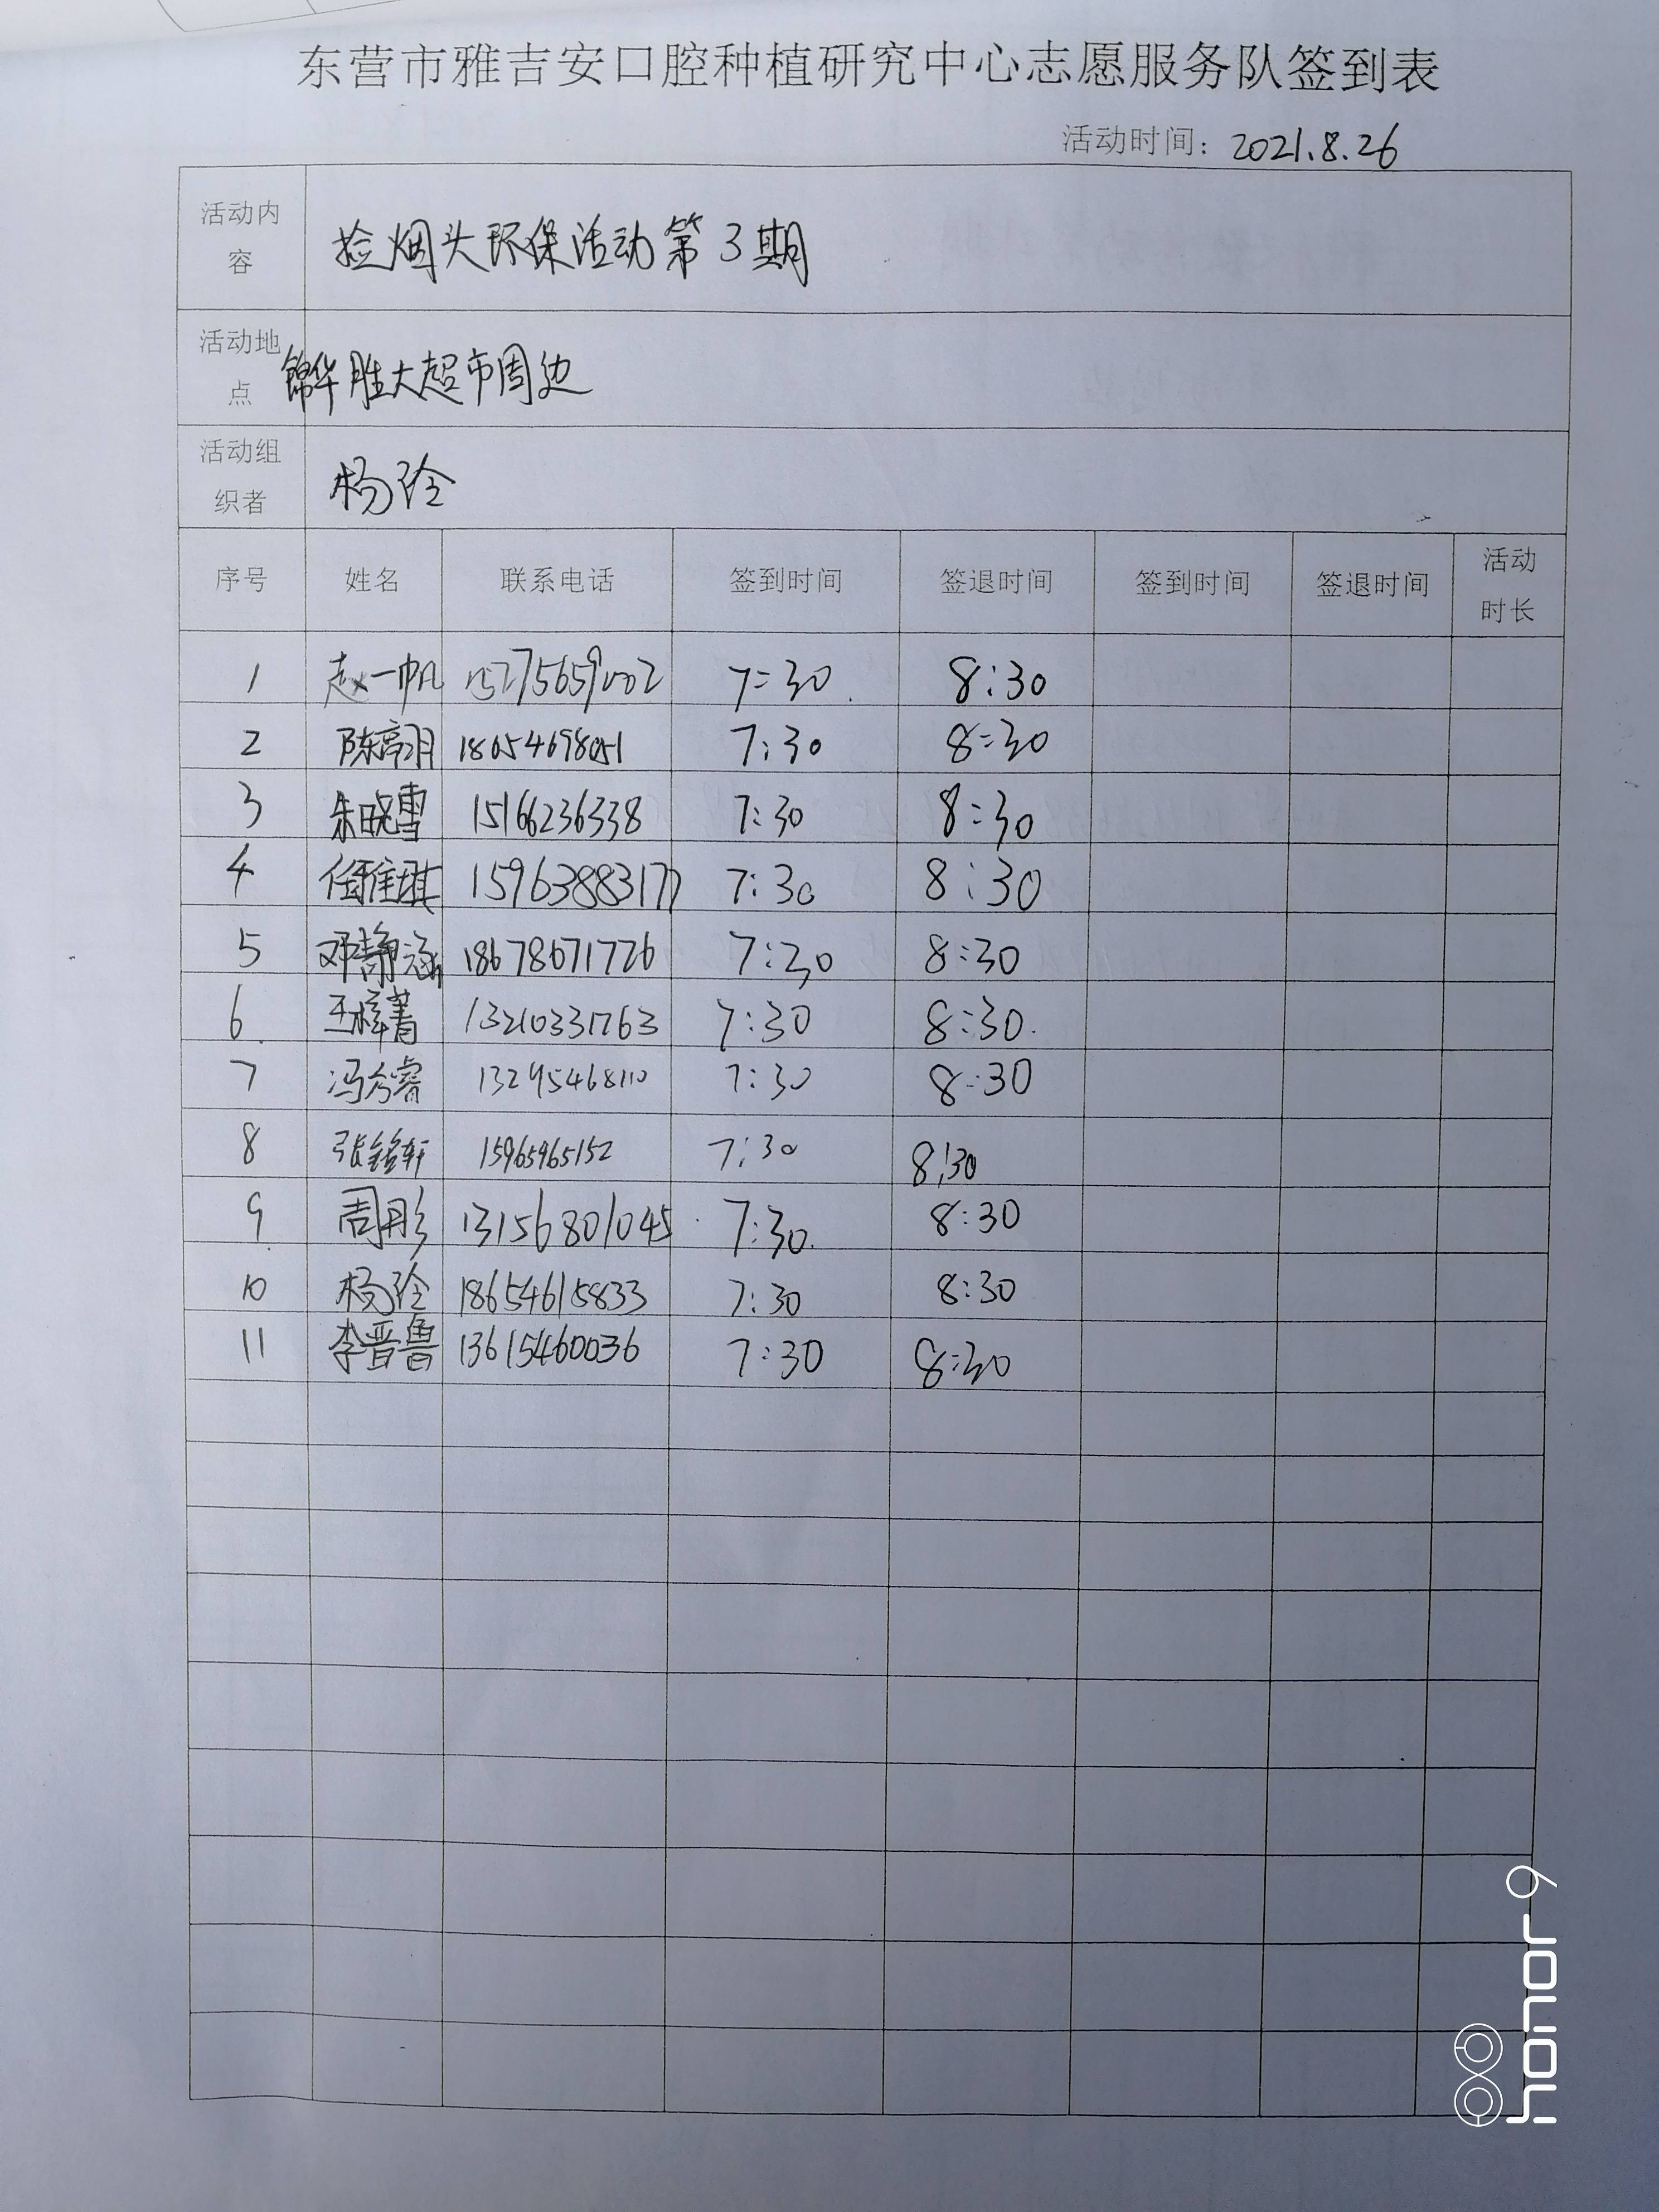 东营市雅吉安口腔种植研究中心志愿服务队签到表
活动时间：2021.8.26
活动内容 捡烟头环保活动第3期
活动地点 锦华胜大超市周边
活动组织者 杨玲
序号 姓名 联系电话 签到时间 签退时间 签到时间 签退时间 活动时长
1 赵一帆 7:30 8:30
2 7:30 8:30
3 朱晓雪 15166236338 7:30 8:30
4 任雅琪 15963883177 7:30 8:30
5 邓静涵 18678671726 7:30 8:30
6 王梓菁 13210331763 7:30 8:30
7 13295468110 7:30 8:30
8 张铭轩 15965965152 7:30 8:30
9 周彤 13156801045 7:30 8:30
10 杨玲 18654615833 7:30 8:30
11 李晋鲁 13615460036 7:30 8:30
honor 9